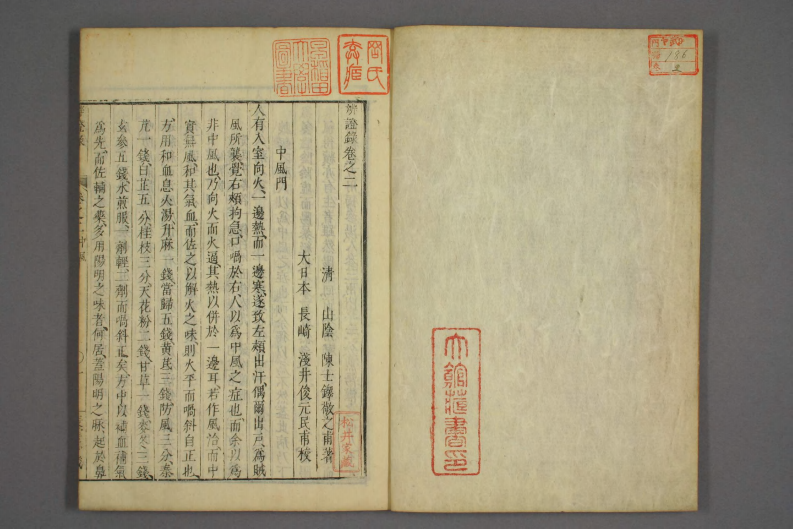 辨證錄卷之二
清　山陰　陳士鐸敬之甫著
大日本　長崎　淺井俊元民甫校
中風門
人有入室向火、一邊熱、而一邊寒、遂致左頰出汗、偶爾出戶、為賊
風所襲、覺右頰拘急、口喎於右、人以為中風之症也、而余以為
非中風也、乃向火而火逼其熱以併於一邊耳、若作風治、而中
實無風、和其氣血、而佐之以解火之味、則火平而喎斜自正也、
方用和血息火湯、升麻一錢、當歸五錢、黃芪三錢、防風三分、秦
艽一錢、白芷五分、桂枝三分、天花粉二錢、甘草一錢、麥冬三錢、
玄參五錢、水煎服、一劑輕、二劑而喎斜正矣、方中以補血補氣
為先、而佐輔之藥、多用陽明之味者、何居、蓋陽明之脈、起於鼻
松井家藏